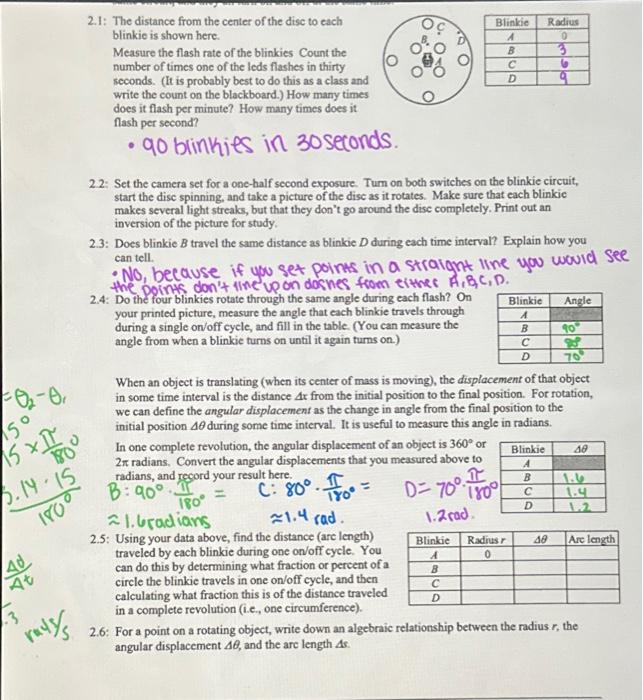 2.1: The distance from the center of the disc to each
blinkie is shown here.
Measure the flash rate of the blinkies Count the
number of times one of the leds flashes in thirty
seconds. (It is probably best to do this as a class and
write the count on the blackboard.) How many times
does it flash per minute? How many times does it
flash per second?
C
B.
D
A
Blinkie Radius
A 0
B 3
C 6
D 9
• 90 blinkies in 30 seconds.
2.2: Set the camera set for a one-half second exposure. Turn on both switches on the blinkie circuit,
start the disc spinning, and take a picture of the disc as it rotates. Make sure that each blinkie
makes several light streaks, but that they don't go around the disc completely. Print out an
inversion of the picture for study.
2.3: Does blinkie B travel the same distance as blinkie D during each time interval? Explain how you
can tell.
• No, because if you set points in a straight line you would see
the points don't line up on dashes from either A, B, C, D.
2.4: Do the four blinkies rotate through the same angle during each flash? On
your printed picture, measure the angle that each blinkie travels through
during a single on/off cycle, and fill in the table. (You can measure the
angle from when a blinkie turns on until it again turns on.)
Blinkie Angle
A
B 90°
C 80°
D 70°
When an object is translating (when its center of mass is moving), the displacement of that object
in some time interval is the distance Δx from the initial position to the final position. For rotation,
we can define the angular displacement as the change in angle from the final position to the
initial position Δθ during some time interval. It is useful to measure this angle in radians.
= θ2 - θ1
15°
15 × π/180°
3.14 · 15
180°
Δθ
Δt
.3
rad/s
In one complete revolution, the angular displacement of an object is 360° or
2π radians. Convert the angular displacements that you measured above to
radians, and record your result here.
B: 90° · π/180° = C: 80° · π/180° = D= 70° · π/180°
≈ 1.6 radians ≈ 1.4 rad. 1.2 rad.
Blinkie Δθ
A
B 1.6
C 1.4
D 1.2
2.5: Using your data above, find the distance (arc length)
traveled by each blinkie during one on/off cycle. You
can do this by determining what fraction or percent of a
circle the blinkie travels in one on/off cycle, and then
calculating what fraction this is of the distance traveled
in a complete revolution (i.e., one circumference).
Blinkie Radius r Δθ Arc length
A 0
B
C
D
2.6: For a point on a rotating object, write down an algebraic relationship between the radius r, the
angular displacement Δθ, and the arc length Δs.